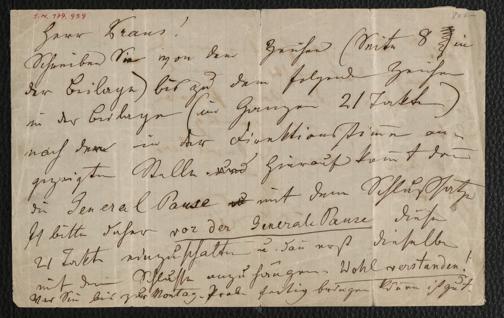 I.N. 179.959
Herr Kraus!
Schreiben Sie von dem Zeichen (Seite 8 in
der Beilage) bis zu dem folgend Zeichen
in der Beilage (im Ganzen 21 Takte)
nach der in der Direktionsstimme an-
gezeigten Stelle. Hierauf kommt dann
die General Pause mit dem Schlußsatze
Ich bitte daher vor der General Pause diese
21 Takte einzuschalten u. dan erst dieselbe
mit dem Schlusse anzuhängen. Wohl verstanden!
Wenn Sie bis zur Montag-Probe fertig bringen können ist gut.